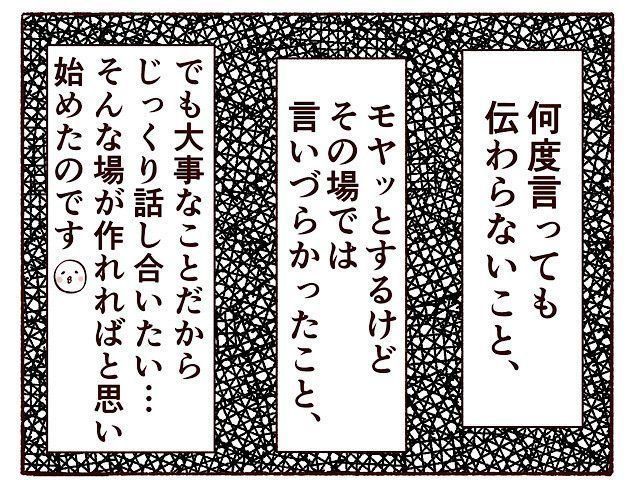 何度言っても
伝わらないこと、
モヤッとするけど
その場では
言いづらかったこと、
でも大事なことだから
じっくり話し合いたい…
そんな場が作れればと思い
始めたのです